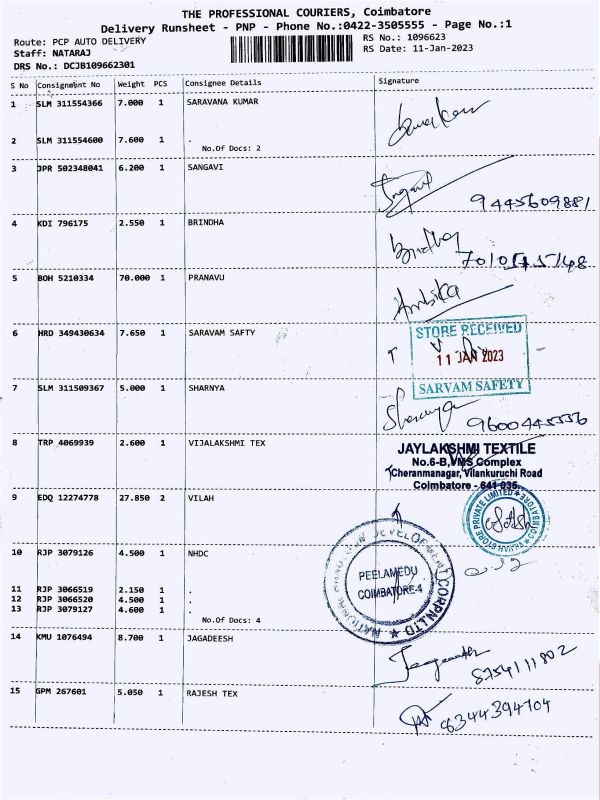 THE PROFESSIONAL COURIERS, Coimbatore
Delivery Runsheet - PNP - Phone No.:0422-3505555 - Page No.:1
Route: PCP AUTO DELIVERY
RS No.: 1096623
Staff: NATARAJ
RS Date: 11-Jan-2023
DRS No.: DCJB109662301
S No Consignment No Weight PCS Consignee Details Signature
1 SLM 311554366 7.000 1 SARAVANA KUMAR
2 SLM 311554600 7.600 1 .
No.Of Docs: 2
3 JPR 502348041 6.200 1 SANGAVI
9445609881
4 KDI 796175 2.550 1 BRINDHA
Brindha
5 BOH 5210334 70.000 1 PRANAVU
Ambika
6 HRD 349430634 7.650 1 SARAVAM SAFTY
STORE RECEIVED
11 JAN 2023
SARVAM SAFETY
7 SLM 311509367 5.000 1 SHARNYA
Sharanya
9600445336
8 TRP 4069939 2.600 1 VIJALAKSHMI TEX
JAYLAKSHMI TEXTILE
No.6-B,VMS Complex
Cheranmanagar, Vilankuruchi Road
Coimbatore - 641 035.
9 EDQ 12274778 27.850 2 VILAH
10 RJP 3079126 4.500 1 NHDC
PEELAMEDU
COIMBATORE-4
11 RJP 3066519 2.150 1 .
12 RJP 3066520 4.500 1 .
13 RJP 3079127 4.600 1 .
No.Of Docs: 4
14 KMU 1076494 8.700 1 JAGADEESH
8754111802
15 GPM 267601 5.050 1 RAJESH TEX
6344394704